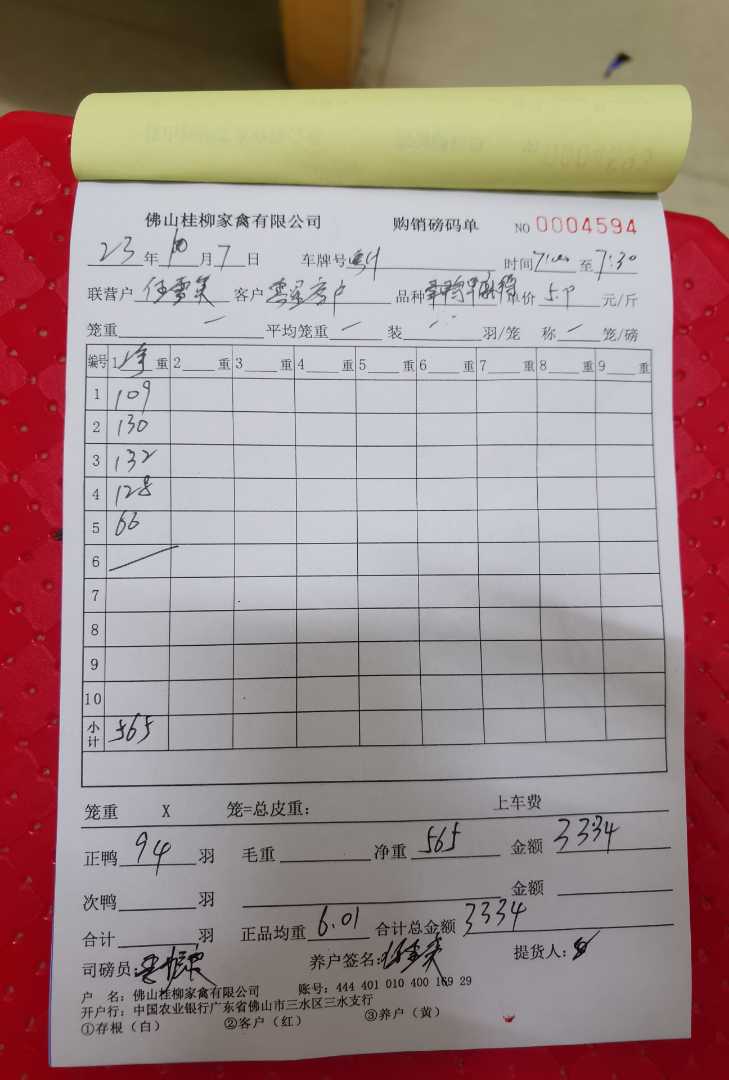 佛山桂柳家禽有限公司 购销磅码单 NO 0004594
23年10月7日 车牌号 时间7:00至7:30
联营户 任雪英 客户 品种 单价5.9元/斤
笼重 — 平均笼重 — 装 羽/笼 称 — 笼/磅
编号 1净重 2 重 3 重 4 重 5 重 6 重 7 重 8 重 9 重
1 109
2 130
3 132
4 128
5 66
6
7
8
9
10
小计 565
笼重 X 笼=总皮重: 上车费
正鸭94羽 毛重 净重565 金额3334
次鸭 羽 金额
合计 羽 正品均重6.01 合计总金额3334
司磅员: 养户签名:任雪英 提货人:
户 名: 佛山桂柳家禽有限公司 账号: 444 401 010 400 169 29
开户行: 中国农业银行广东省佛山市三水区三水支行
①存根(白) ②客户(红) ③养户(黄)